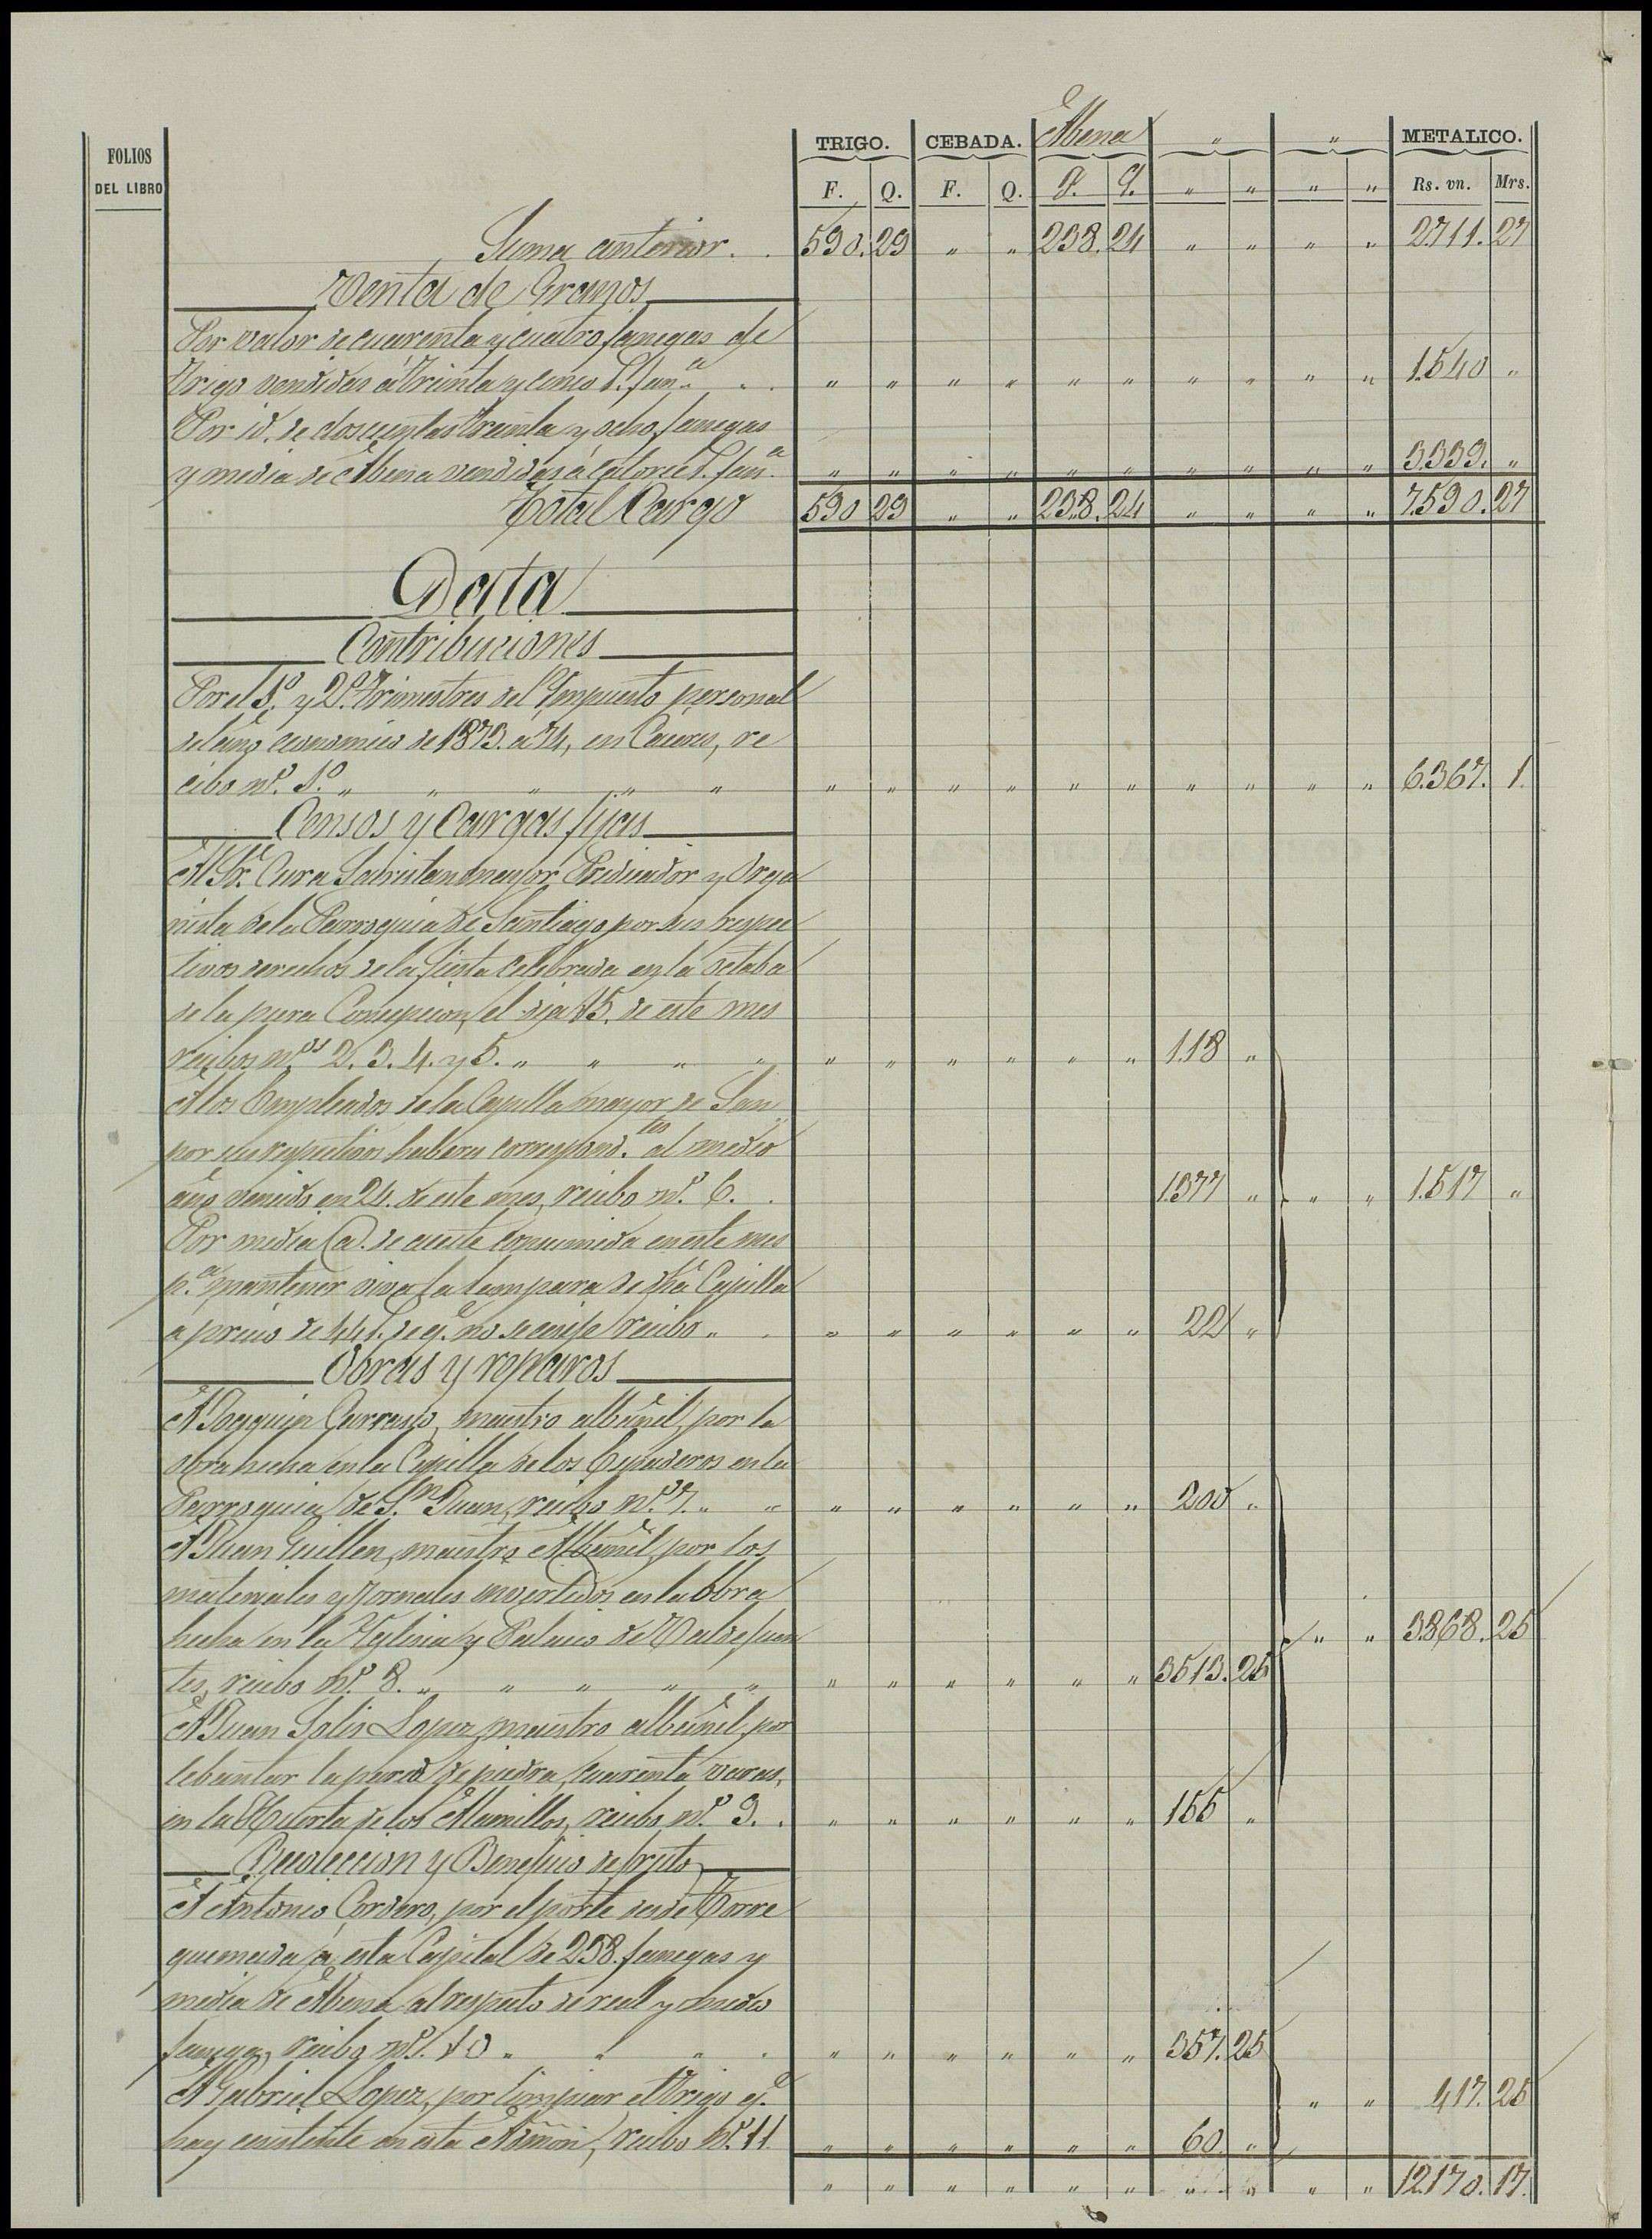 FOLIOS DEL LIBRO TRIGO. CEBADA. Abena " " METALICO.
F. Q. F. Q. F. Q. " " " " Rs. vn. Mrs.
Suma anterior. . 590. 29 " " 238. 24 " " " " 2.711. 27
Venta de Granos
Por valor de cuarenta y cuatro fanegas de
Trigo vendidas á treinta y cinco r.s fan.a . . " " " " " " " " " " 1.540 "
Por id. de doscientas treinta y ocho fanegas
y media de Abena vendidas á catorce r.s fan.a " " " " " " " " " " 3339. "
Total Cargo 590 29 " " 238. 24 " " " " 7.590. 27
Data
Contribuciones
Por el 1.º y 2.º Trimestres del Ympuesto personal
del año economico de 1873. a 74, en Cáceres, re
cibo n.º 1.º " " " " " " " " " " " " " " " 6.367. 1.
Censos y Cargas fijas
Al Sr. Cura Sacristan mayor Predicador y Orga
nista de la Parroquia de Santiago por sus respec
tivos derechos de la fiesta celebrada en la Octaba
de la pura Concepcion, el dia 15. de este mes
recibos n.os 2. 3. 4. y 5. " " " " " " " " " " 118 "
A los Empleados de la Capilla mayor de San
por sus respectivos haberes correspond.tes al medio
año vencido en 24. de este mes, recibo n.º 6. . 1.377 " " " 1.517 "
Por media @. de aceite consumida en este mes
p.a mantener viva la lampara de dha Capilla
á precio de 44 r.s de q.e no se exije recibo " . " " " " " " 22 "
Obras y reparos
A Joaquin Carrasco, maestro albañil, por la
obra hecha en la Capilla de los Cuaderos en la
Parroquia de S.n Juan, recibo n.º 7. " " " " " " " " 200 "
A Juan Guillen, maestro Albañil, por los
materiales y Jornales invertidos en la obra
hecha en la Yglesia y Palacio de Valdefuen " " 3.868. 25
tes, recibo n.º 8. " " " " " " " " " " " 3513. 25
A Juan Solis Lopez, maestro albañil, por
lebantar la pared de piedra, cuarenta varas,
en la Huerta de los Alamillos, recibo n.º 9. . " " " " " " 155 "
Recoleccion y Beneficio de frutos
A Antonio Cordero, por el porte desde Torre
quemada á esta Capital de 238. fanegas y
media de Abena al respecto de real y medio
fanega, recibo n.º 10 " " " . " " " " " " 357. 25
A Gabriel Lopez, por limpiar el Trigo q.e " " 417. 25
hay existente en esta Admon, recibo n.º 11 " " " " " " 60. "
" " " " " " " " " " 12.170. 17.